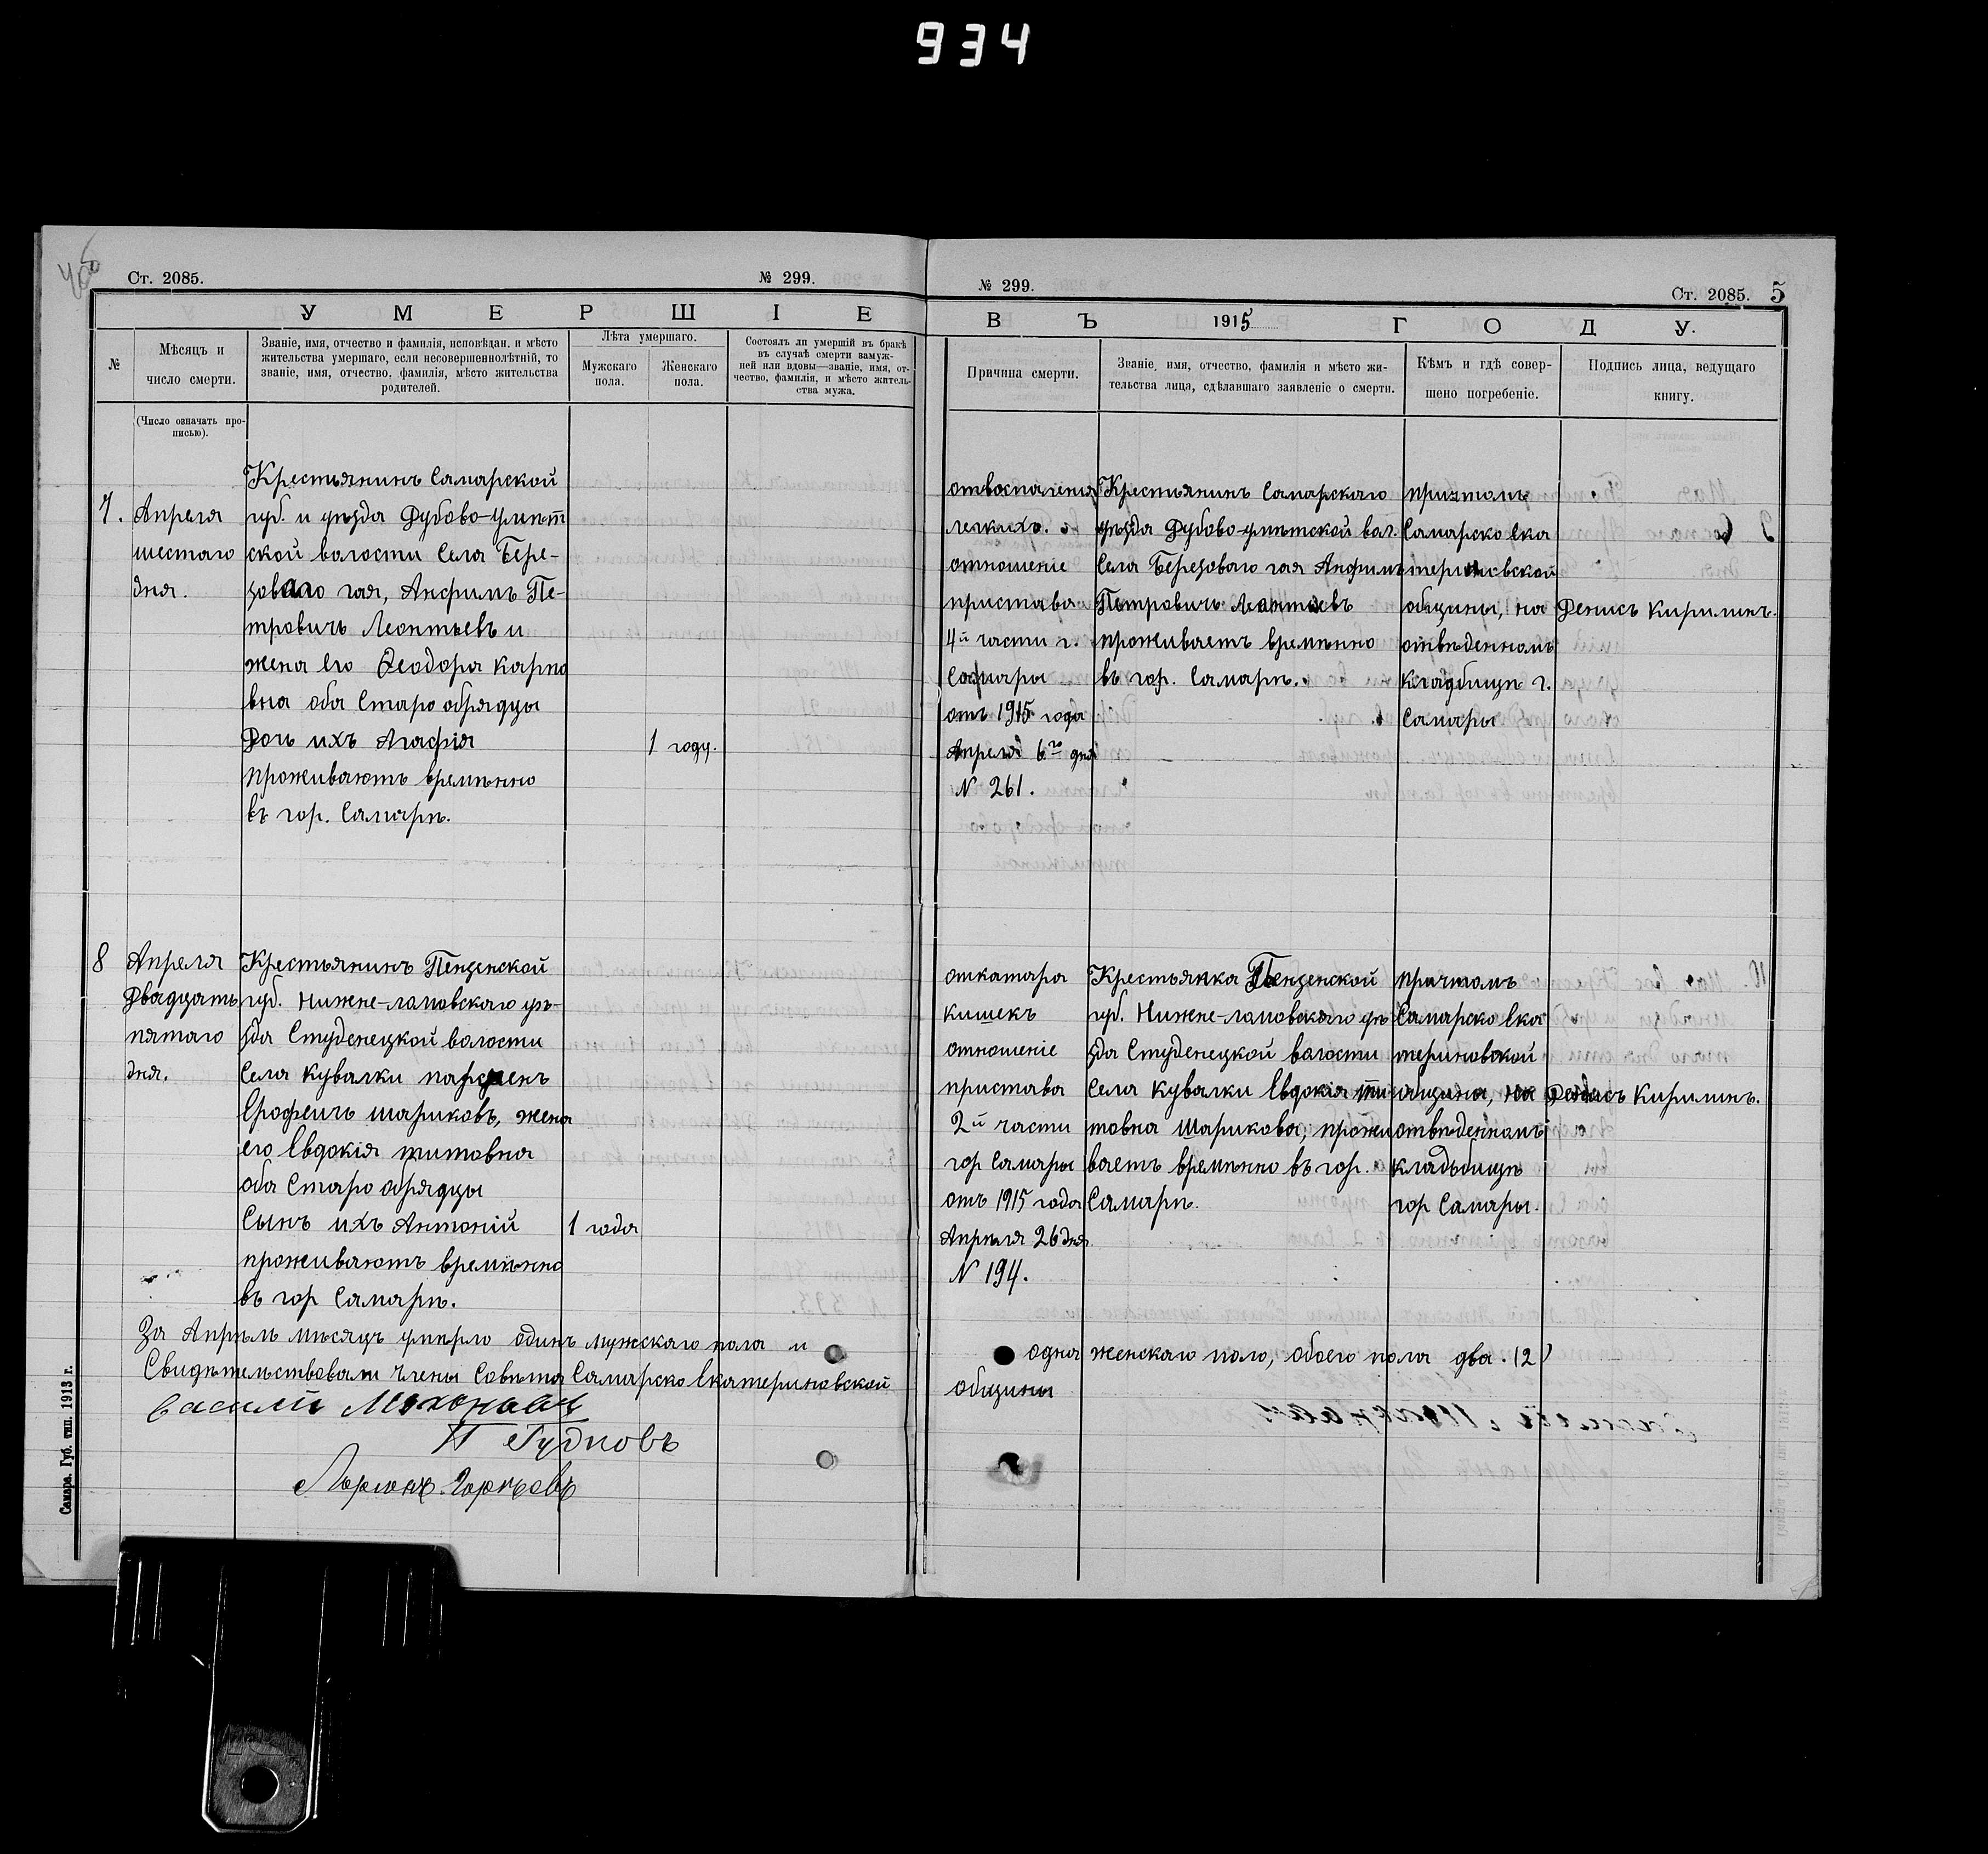 934
Ст. 2085.
№ 299.
У М Е Р Ш І Е
№
Мѣсяцъ и
число смерти.
(Число означать про-
писью).
Званіе, имя, отчество и фамилія, исповѣдан. и мѣсто
жительства умершаго, если несовершеннолѣтній, то
званіе, имя, отчество, фамилія, мѣсто жительства
родителей.
Лѣта умершаго.
Мужскаго
пола.
Женскаго
пола.
Состоялъ ли умершій въ бракѣ
въ случаѣ смерти замуж-
ней или вдовы—званіе, имя, от-
чество, фамилія, и мѣсто житель-
ства мужа.
7.
Апреля
шестаго
дня.
Крестьянинъ Самарской
губ. и уѣзда Дубово-умѣт
ской волости Села Бере-
зоваго гая, Анфимъ Пе-
тровичъ Леонтьевъ и
жена его Ѳеодора Карпо
вна оба Старо обрядцы
Дочь ихъ Агафія
проживаютъ времѣнно
въ гор. Самарѣ.
1 году.
8
Апреля
Двадцать
пятаго
дня.
Крестьянинъ Пензенской
губ. Нижне-ламовскаго уѣ-
зда Студенецкой волости
Села Кувалки парфенъ
Ерофеичъ шариковъ, жена
его Евдокія титовна
оба Старо обрядцы
Сынъ ихъ Антоній
проживаютъ времѣнно
въ гор Самарѣ.
1 года
За Апрѣль мѣсяцъ умерло одинъ мужскаго пола и
Свидѣтельствовали Члены Совѣта Самарско Екатериновской
П Гудковъ
Самара. Губ. тип. 1913 г.
№ 299.
Ст. 2085.
5
В Ъ 1915 Г О Д У.
Причина смерти.
Званіе, имя, отчество, фамилія и мѣсто жи-
тельства лица, сдѣлавшаго заявленіе о смерти.
Кѣмъ и гдѣ совер-
шено погребеніе.
Подпись лица, ведущаго
книгу.
отвоспаленія
легкихъ.
отношеніе
пристава
4й части г.
Самары
отъ 1915 года
Апреля 6го дня
N 261.
Крестьянинъ Самарскаго
уѣзда Дубово-умѣтской вол.
Села Березоваго гая Анфимъ
Петровичъ Леонтьевъ
проживаетъ времѣнно
въ гор. Самарѣ.
причтомъ
Самарско Ека
териновской
общины, на
отвѣденномъ
Кладбищѣ г.
Самары
Денисъ Кирилинъ.
откатара
кишекъ
отношеніе
пристава
2й части
гор Самары
отъ 1915 года
Апрѣля 26 дня
N 194.
Крестьянка Пензенской
губ. Нижне-ламовскаго уѣ
зда Студенецкой волости
Села Кувалки Евдокія ти
товна Шарикова, прожи
ваетъ времѣнно въ гор.
Самарѣ.
причтомъ
Самарско Ека
териновской
общины, на
отвѣденномъ
кладъбищѣ
гор Самары.
Денисъ Кирилинъ.
одна женскаго поло, обоего пола два. (2)
общины